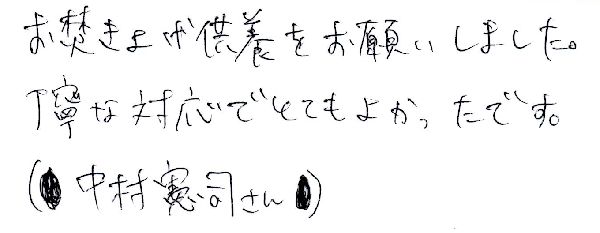 お焚き上げ供養をお願いしました。
丁寧な対応でとてもよかったです。
(中村憲司さん)